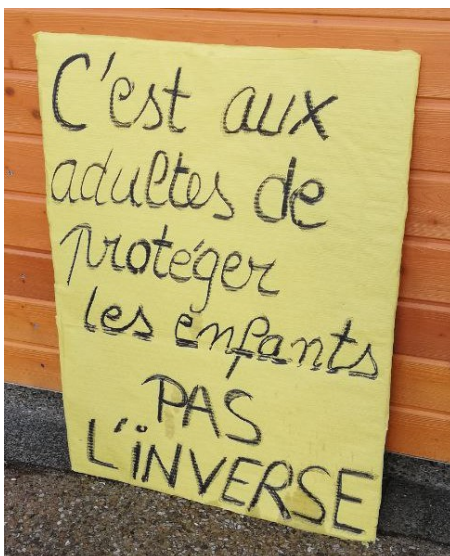 C'est aux
adultes de
protéger
les enfants
PAS
L'INVERSE